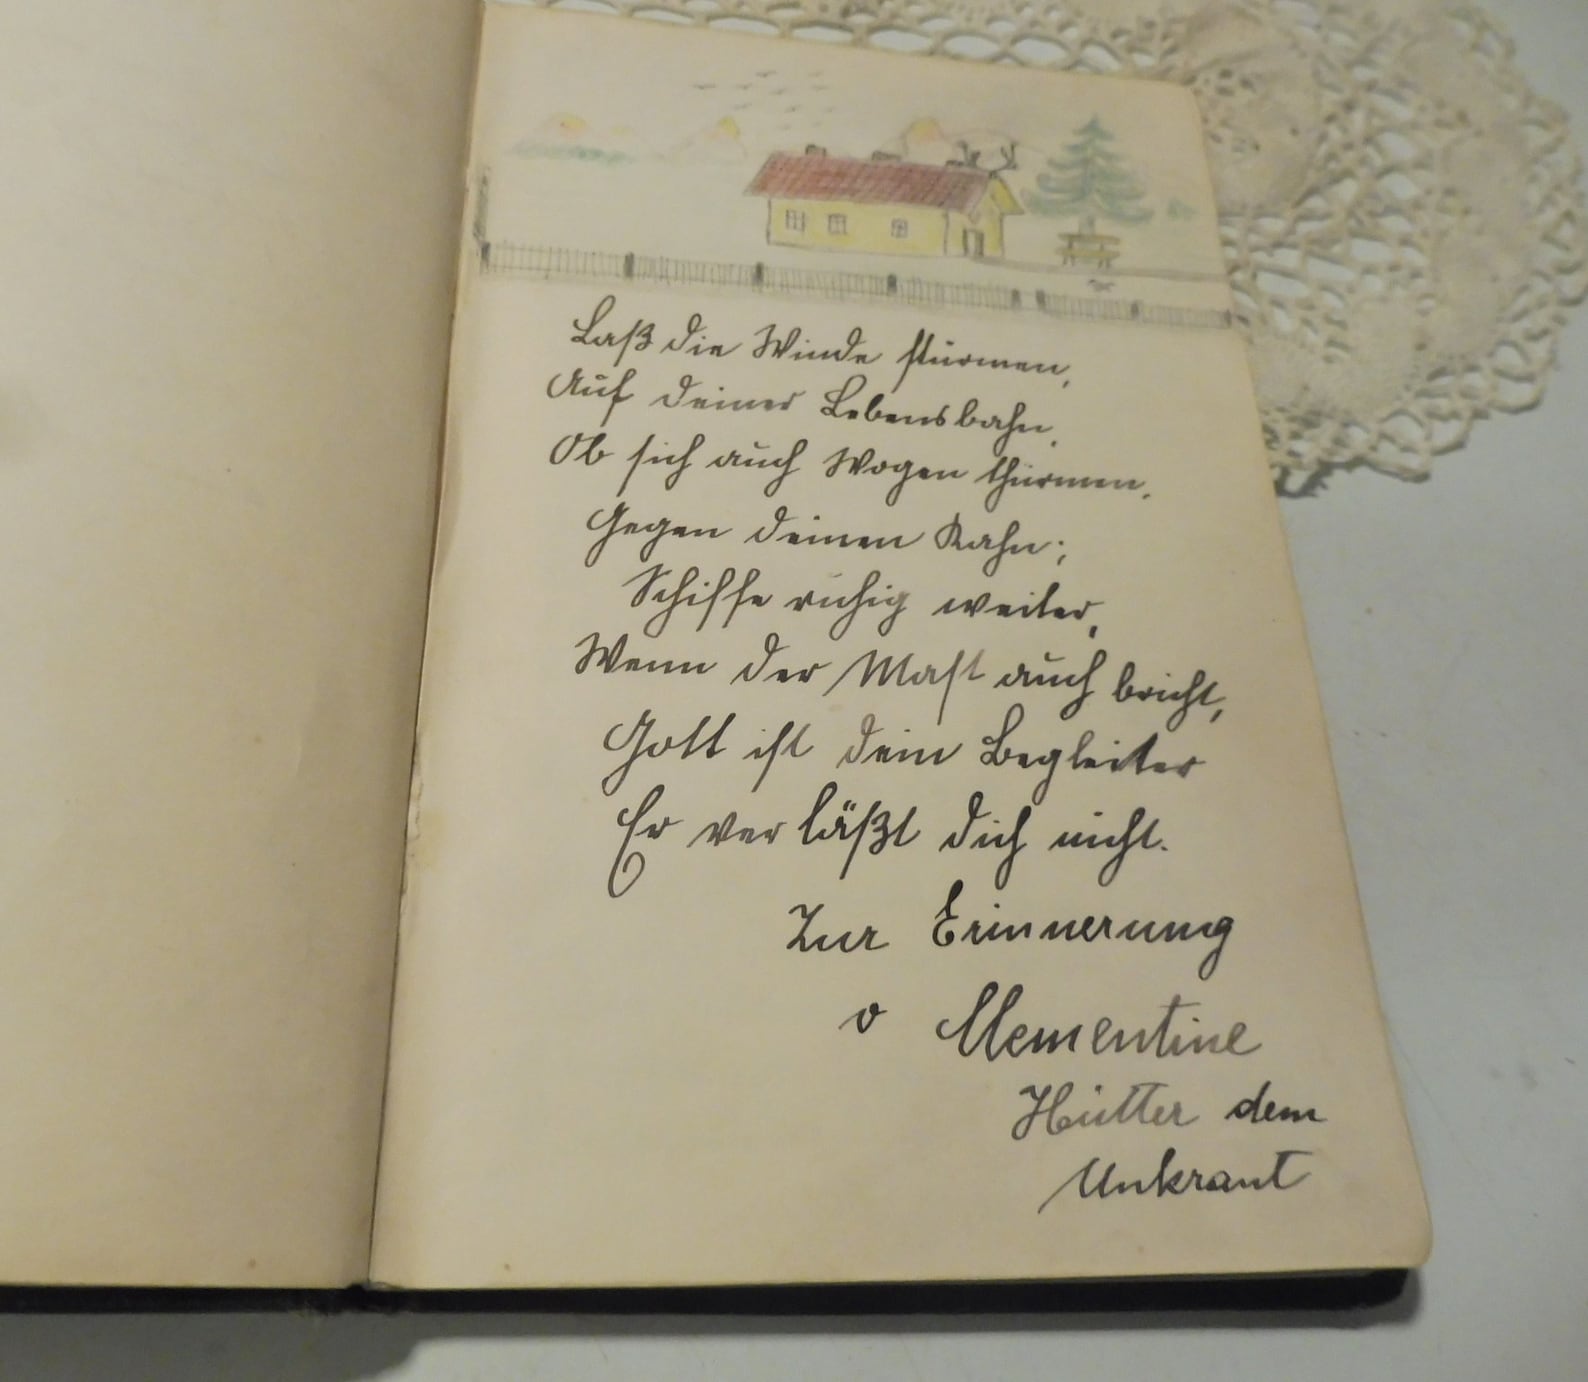 Laß die Winde stürmen,
Auf deiner Lebensbahn,
Ob sich auch Wogen thürmen,
Gegen deinen Kahn;
Schiffe ruhig weiter,
Wenn der Mast auch bricht,
Gott ist dein Begleiter
Er verläßt dich nicht.
Zur Erinnerung
v Clementine
Hütter dem
Unkraut